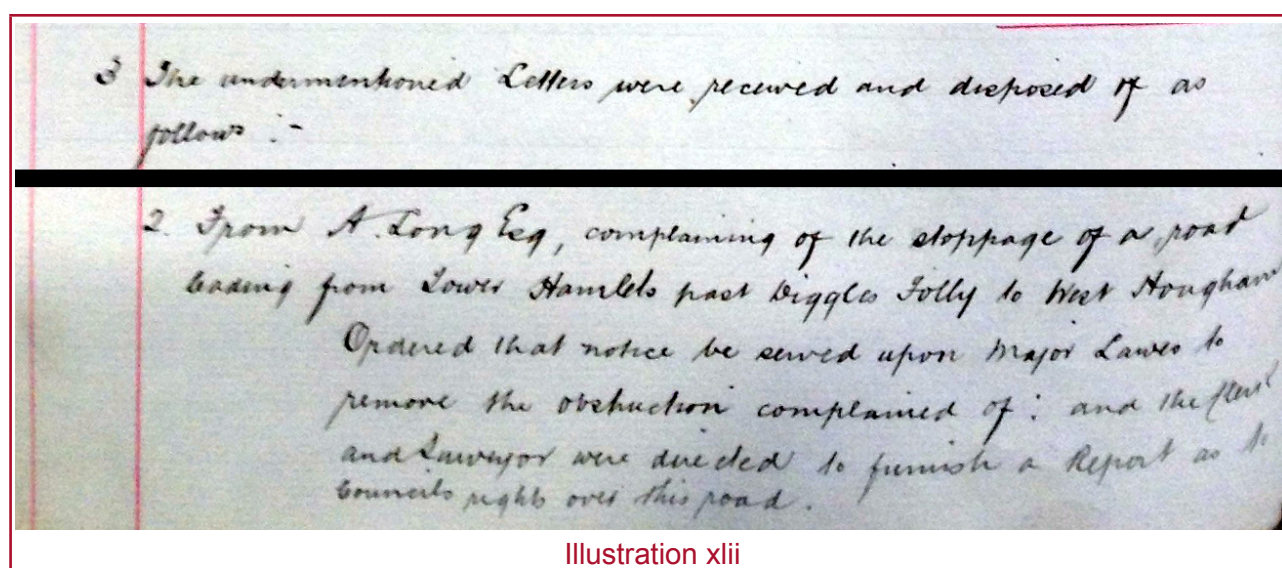 3 The undermentioned Letters were received and disposed of as
follows :-
2. From A. Long Esq, complaining of the stoppage of a road
leading from Lower Hamlets past Diggles Folly to West Hougham
Ordered that notice be served upon Major Lawes to
remove the obstruction complained of : and the Clerk
and Surveyor were directed to furnish a Report as to
Councils rights over this road.
Illustration xlii